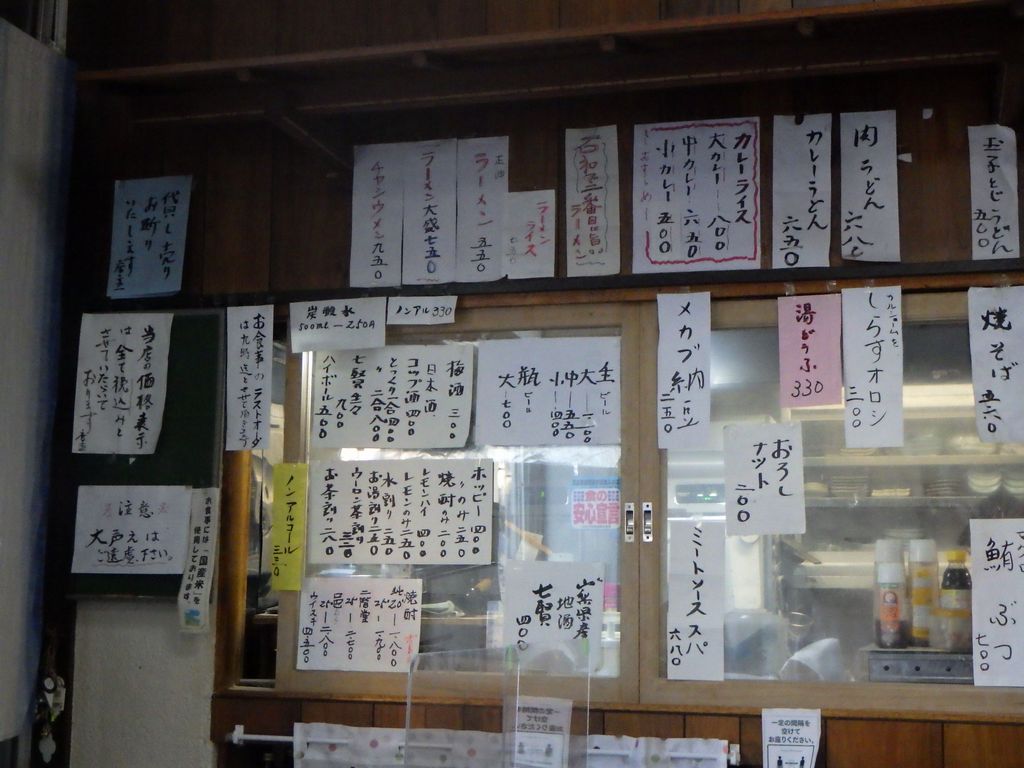 貸し売り
お断り
いたします
店主
チャンラーメン 九五〇
ラーメン大盛 七五〇
正油
ラーメン 五五〇
ラーメン
ライス
石和で二番目に旨い
ラーメン
カレーライス
大カレー 八〇〇
中カレー 六五〇
小カレー 五〇〇
カレーうどん
六五〇
肉うどん
六八〇
玉子とじうどん
五五〇
当店の価格表示
は全て税込みと
させていただいて
おります
店主
お食事のラストオーダー
は九時迄とさせて頂きます
炭酸水
500mL ー 250円
ノンアル 330
梅酒 三〇〇
日本酒
コップ酒 四〇〇
とっくり一合 四〇〇
〃 二合 八〇〇
七賢生々
九〇〇
ハイボール 五〇〇
生ビール
大 一一〇〇
中 五五〇
小 四〇〇
瓶ビール
大 七〇〇
メカブ納豆
二五〇
湯どうふ
330
しらすオロシ
三〇〇
焼そば
五六〇
おろし
ナット
二〇〇
ノンアルコール
三三〇
ホッピー 四〇〇
〃のみ 二五〇
焼酎のみ 二〇〇
レモンハイ 四〇〇
レモンのみ 二五〇
水割り 二五〇
お湯割り 二五〇
ウーロン茶割り 三三〇
お茶割り 二八〇
注意
大声えは
ご遠慮ださい。
お食事には「国産米」を
使用しております。
食の
安心宣言
焼酎
二階堂
ウイスキー 四五〇
山梨県産
地酒
七賢
四〇〇
ミートソーススパ
六八〇
鮪ぶつ
七〇〇
一定の間隔を
空けて
お座りください。
一定の間隔を
空けて
お座りください。